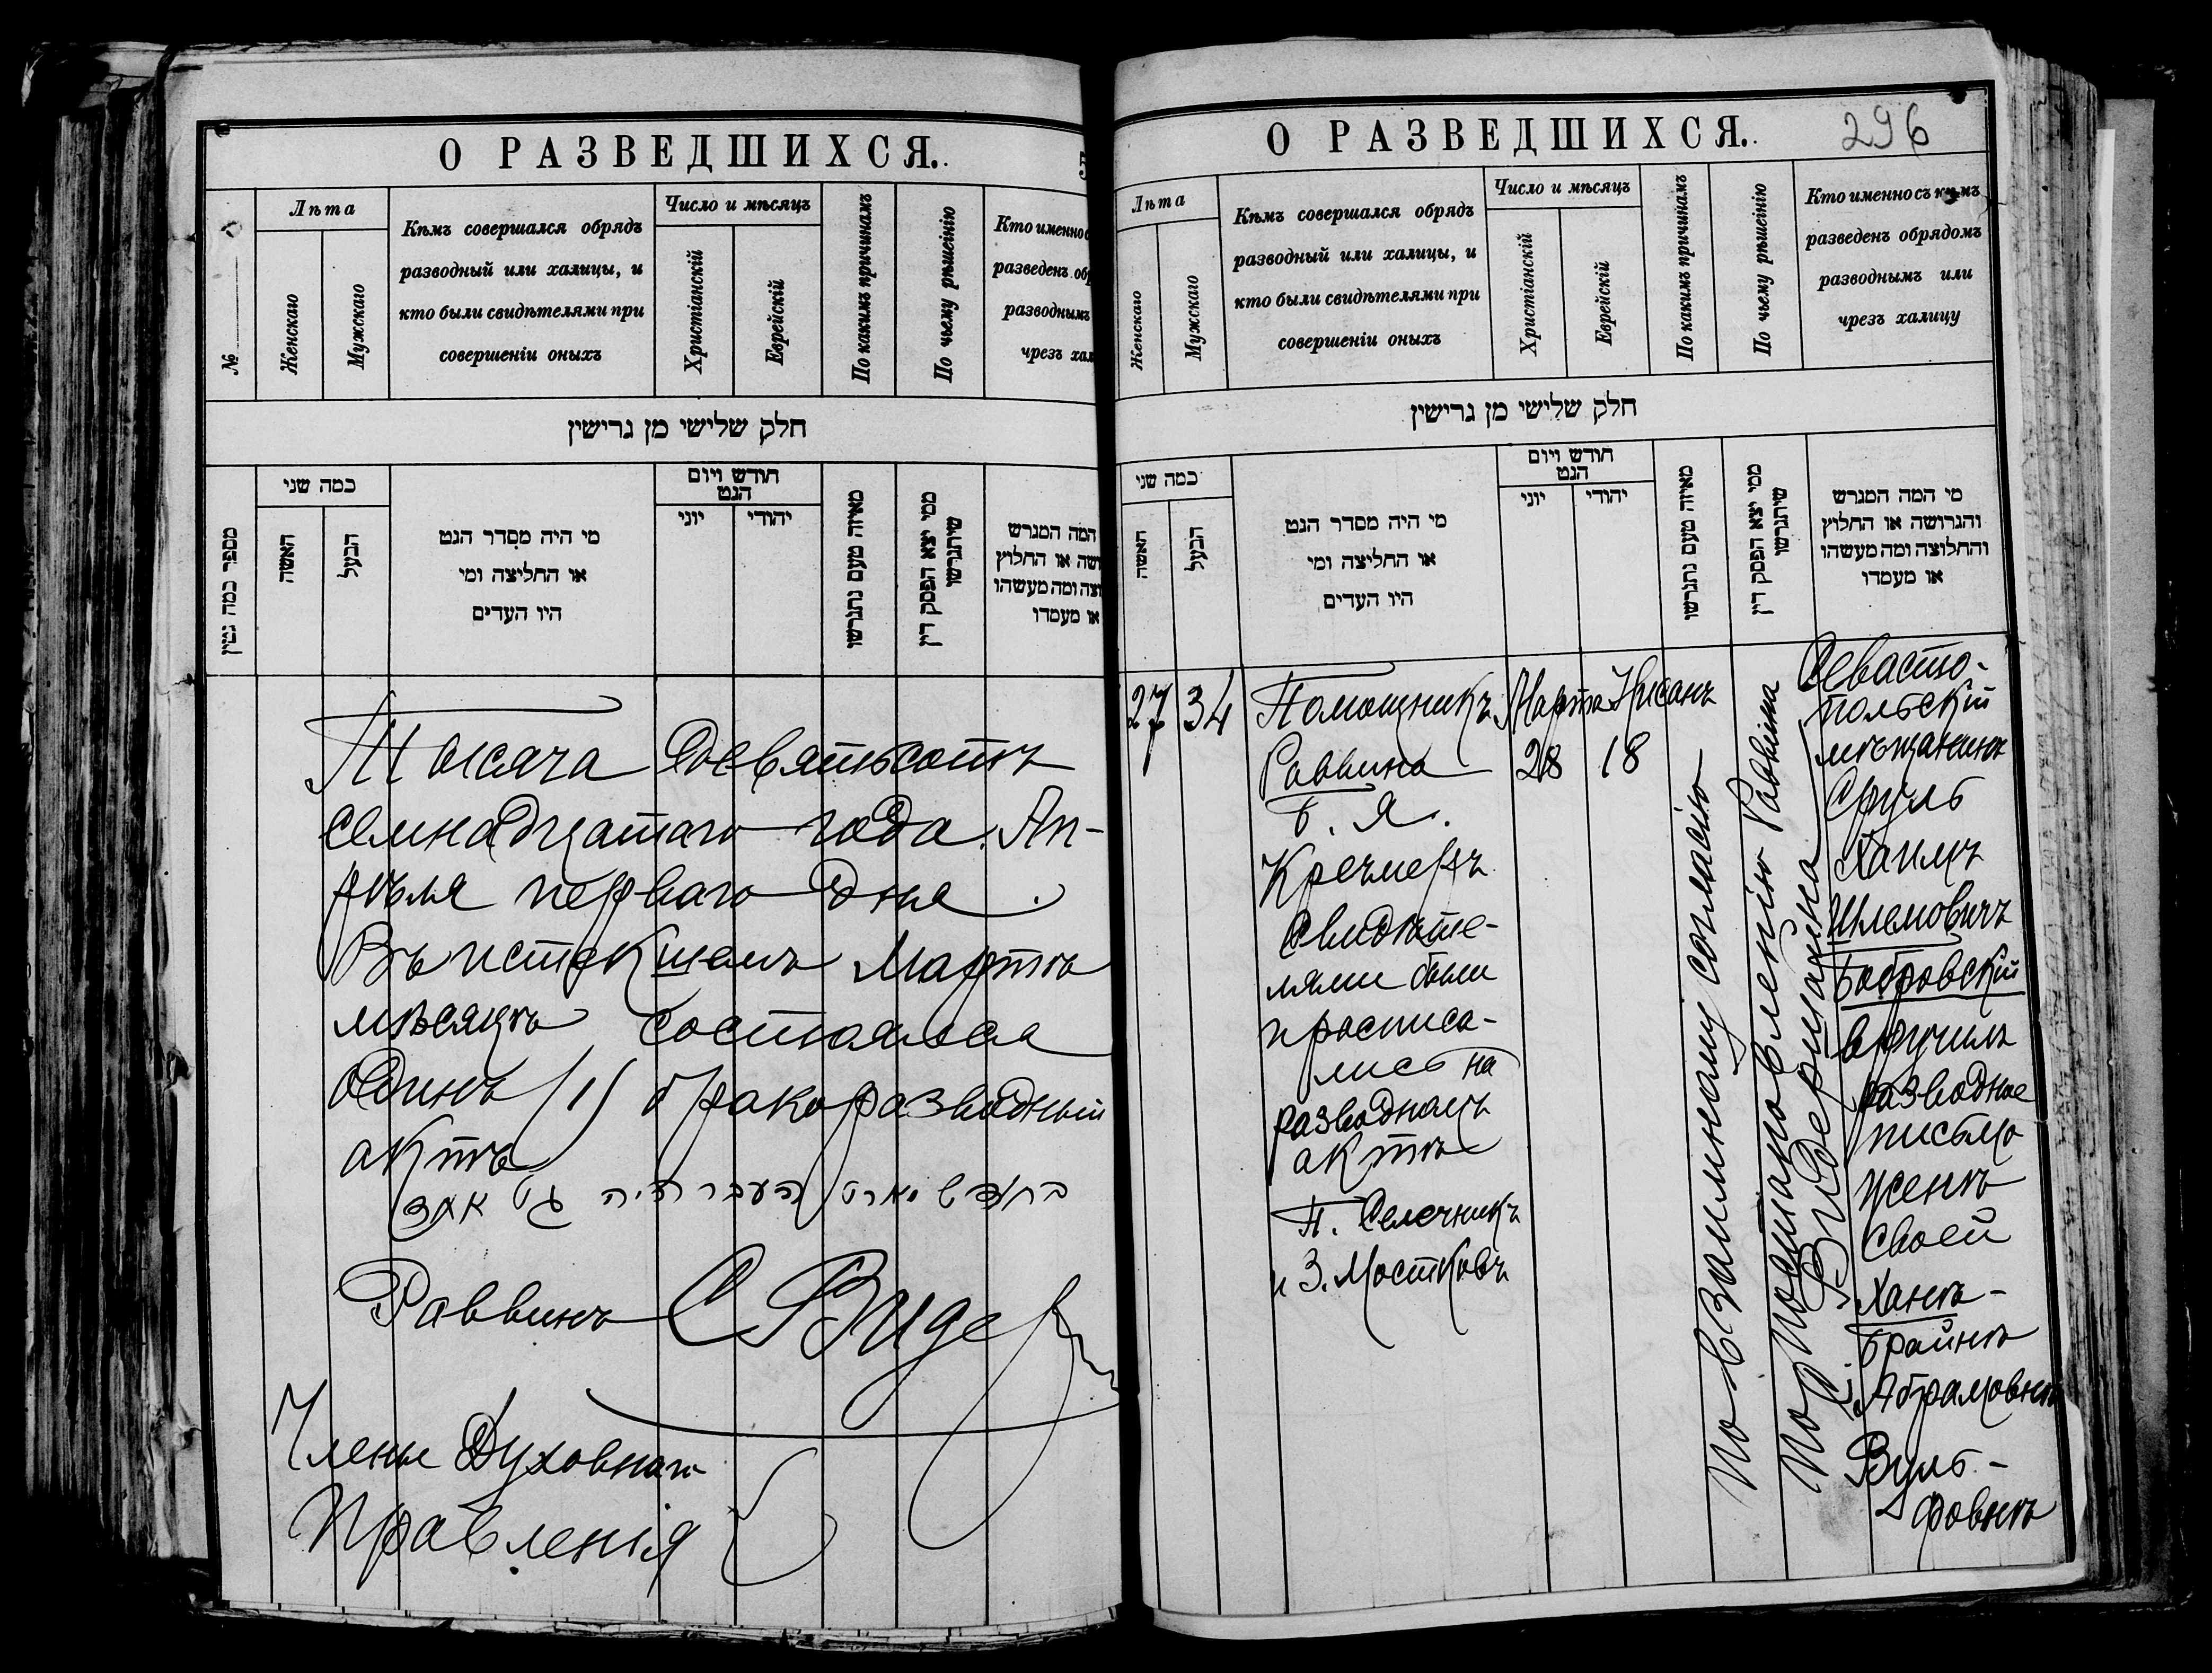 О РАЗВЕДШИХСЯ.
№
Лѣта
Женскаго
Мужскаго
Кѣмъ совершался обрядъ
разводный или халицы, и
кто были свидѣтелями при
совершеніи оныхъ
Число и мѣсяцъ
Христіанскій
Еврейскій
По какимъ причинамъ
По чьему рѣшенію
Кто именно с
разведенъ обр
разводнымъ
чрезъ хал
חלק שלישי מן גרישין
מספר כמה גטין
כמה שני
האשה
הבעל
מי היה מסדר הגט
או החליצה ומי
היו העדים
חודש ויום
הגט
יוני
יהודי
מאיזה טעם נתגרשו
ממי יצא הפסק דין
שיתגרשו
המה המגרש
ושה או החלוץ
וצה ומה מעשהו
או מעמדו
Тысяча девятьсотъ
семнадцатаго года. Ап-
рѣля перваго дня.
Въ истекшемъ Мартѣ
мѣсяцѣ состоялся
одинъ /1/ бракоразводный
актъ
העבר היה גט אחד
Раввинъ С Видер
Члены Духовнаго
Правленія
О РАЗВЕДШИХСЯ.
296
Лѣта
Женскаго
Мужскаго
Кѣмъ совершался обрядъ
разводный или халицы, и
кто были свидѣтелями при
совершеніи оныхъ
Число и мѣсяцъ
Христіанскій
Еврейскій
По какимъ причинамъ
По чьему рѣшенію
Кто именно съ кѣмъ
разведенъ обрядомъ
разводнымъ или
чрезъ халицу
חלק שלישי מן גרישין
כמה שני
האשה
הבעל
מי היה מסדר הגט
או החליצה ומי
היו העדים
חודש ויום
הגט
יוני
יהודי
מאיזה טעם נתגרשו
ממי יצא הפסק דין
שיתגרשו
מי המה המגרש
והגרושה או החלוץ
והחלוצה ומה מעשהו
או מעמדו
27
34
Помощникъ
Раввина
Б. Я.
Кречмеръ
Свидѣте-
лями были
и росписа-
лись на
разводномъ
актѣ
П. Селечникъ
и З. Мостковъ
Марта
28
Нисанъ
18
По взаимному согласію
По постановленію Раввина
С. Видермана
Севасто-
польскій
мѣщанинъ
Сруль
Хаимъ
Шлемовичъ
Бобровскій
вручилъ
разводное
письмо
женѣ
своей
Ханѣ-
Брайнѣ
Абрамовнѣ
Вуль-
фовнѣ